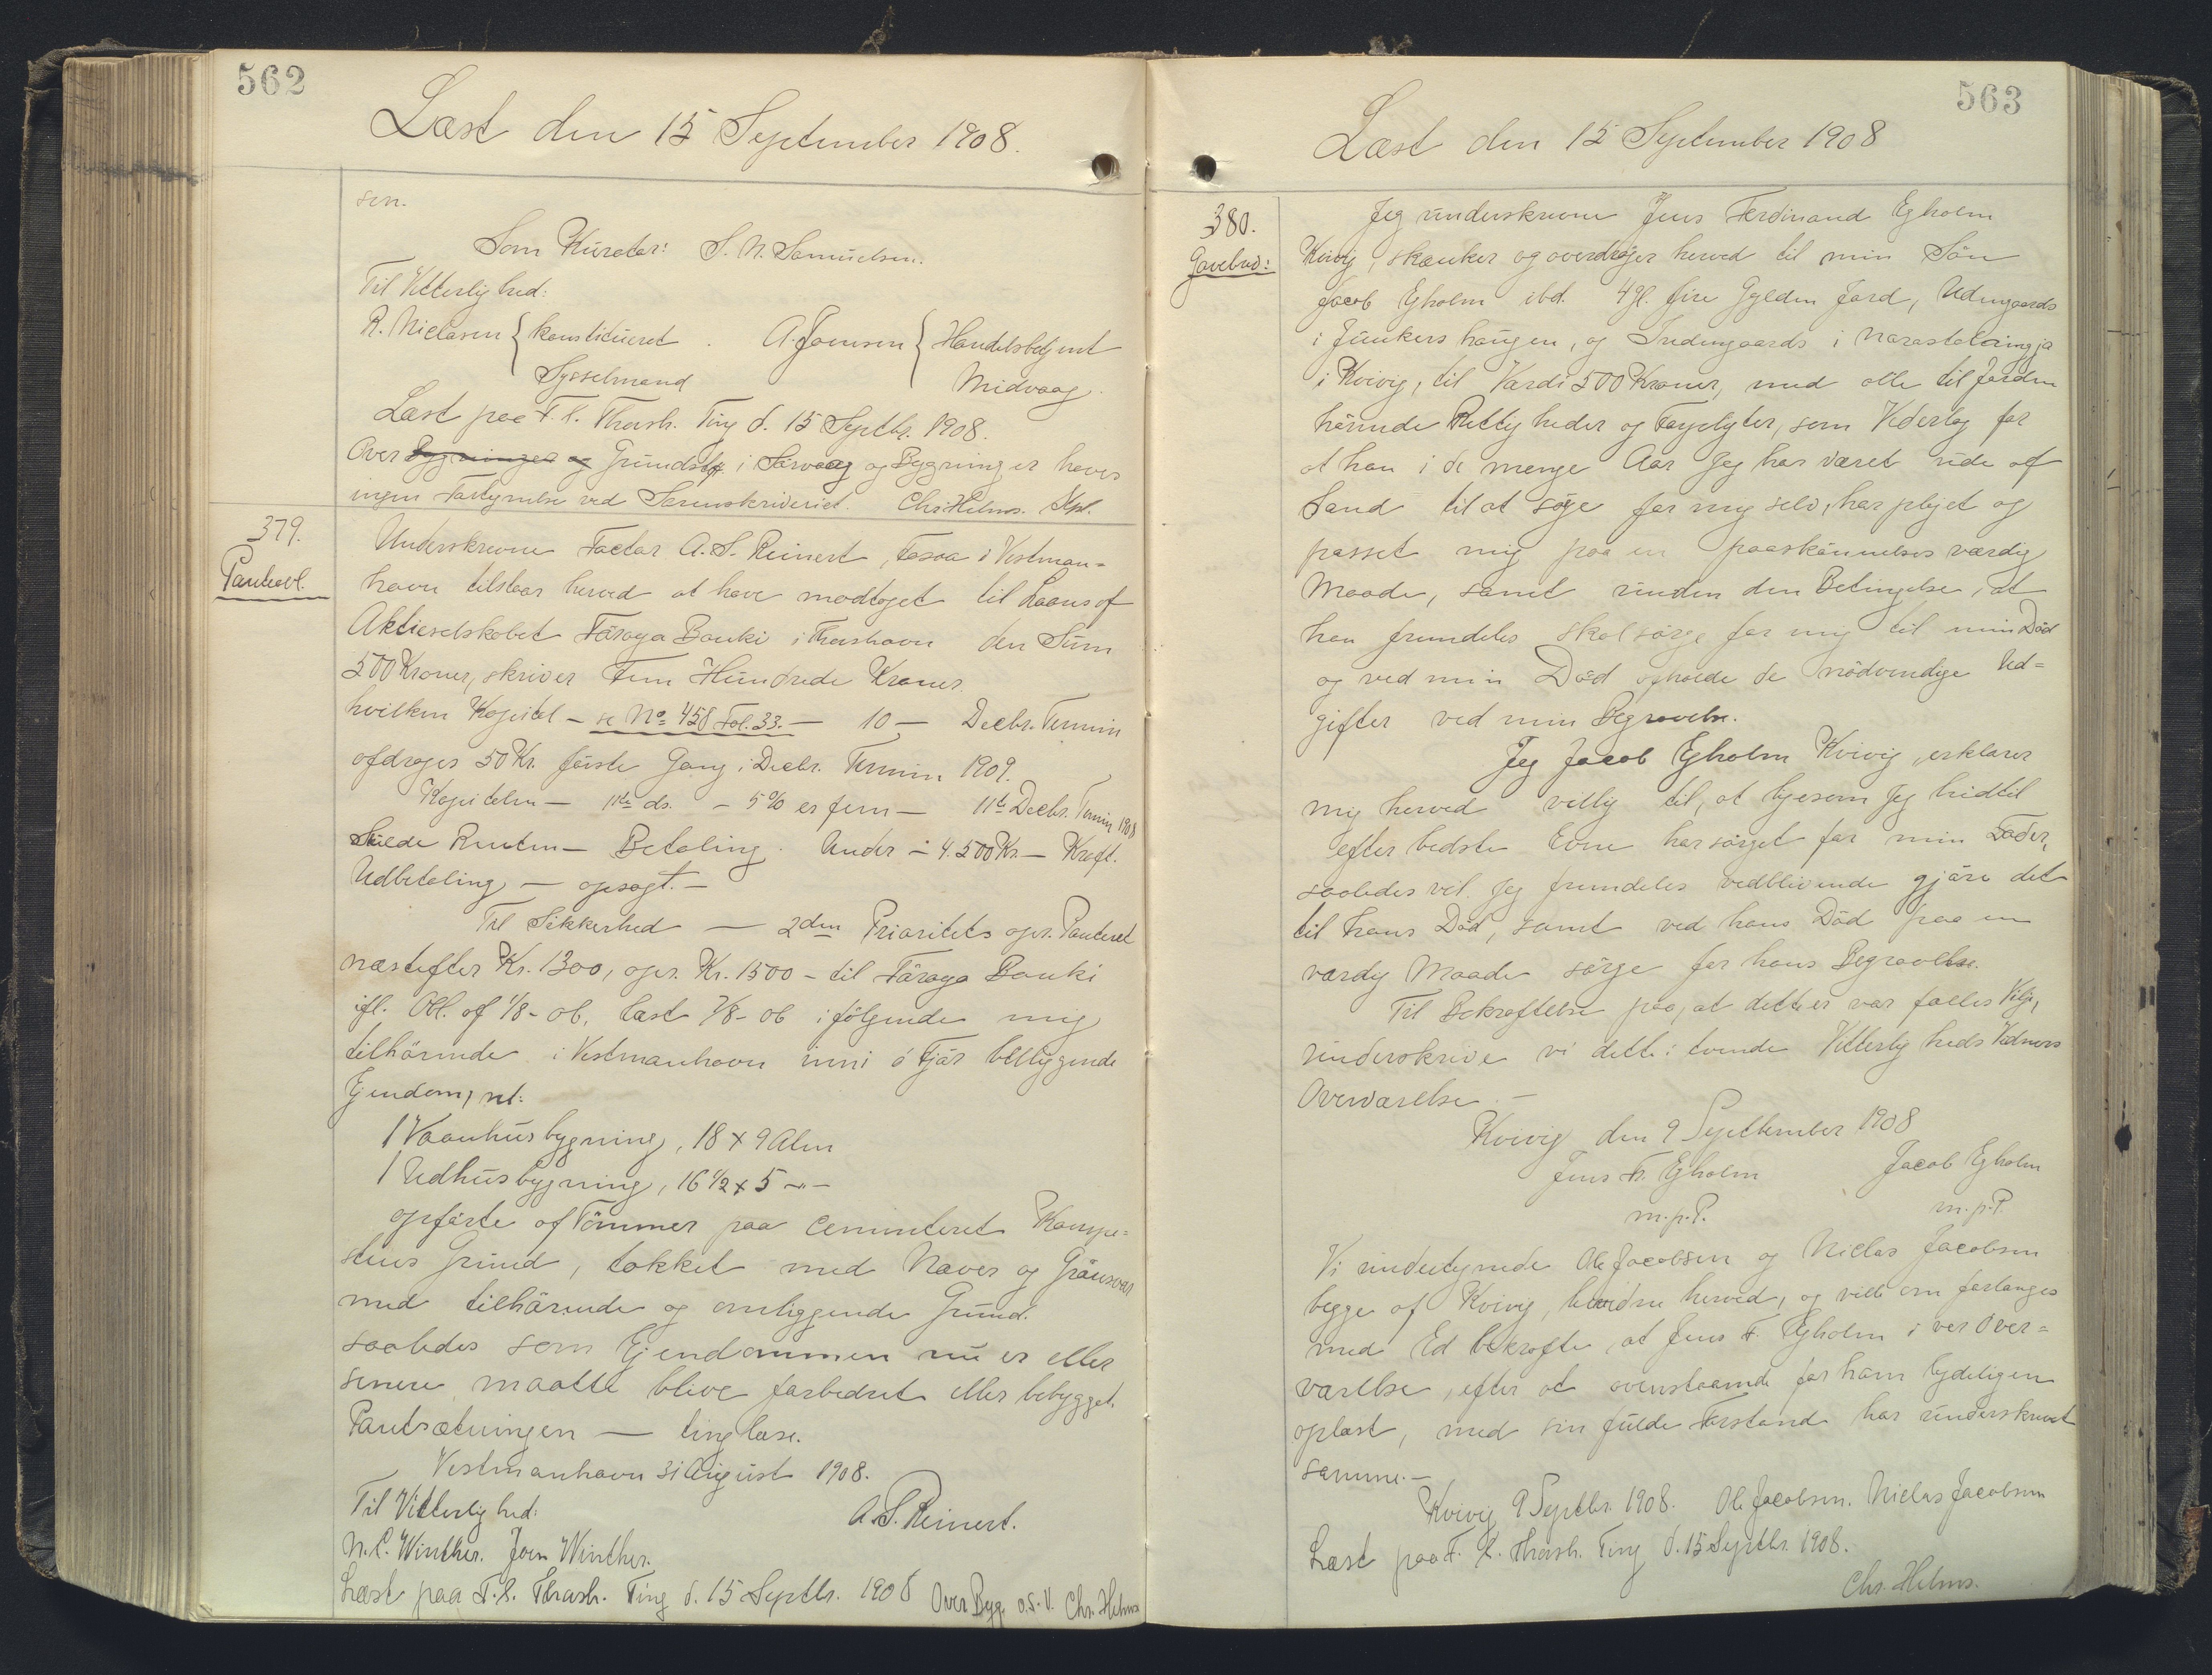 562
Læst den 15 September 1908.
sen.
Som Kurator: S. N. Samuelsen.
Til Vitterlighed:
R. Niclasen { konstitueret A. Joensen { Handelsbetjent
Sysselmand Midvaag.
Læst paa F. l. Thorsh. Ting d. 15 Septbr. 1908.
Over Bygninger og Grundstk i Sørvaag og Bygninger haves
ingen Forsyning ved Sorenskriveriet. Chr. Helms. Kst.
379.
Pantcobl.
Underskrevne Factor A. S. Reinert, Fosaa i Vestman=
havn tilstaar herved at have modtaget til Laans af
Aktieselskabet Föroya Banki i Thorshavn den Sum
500 Kroner, skriver Fem Hundrede Kroner
hvilken Kapital - se No 458 Fol. 33. - 10 - Decbr. Termin
afdrages 50 Kr. første Gang i Decbr. Termin 1909.
Kapitalen - 11te ds. - 5% er fem - 11te Decbr. Termin 1908
Skulde Renten - Betaling. Under - 4. 500 Kr. - Kraft.
Udbetaling - opsagt. -
Til Sikkerhed - 2den Prioritets opr. Panteret
næstefter Kr. 1300, opr. Kr. 1500 - til Föroya Banki
ifl. Obl. af 1/8 - 06, læst 7/8 - 06 i følgende mig
tilhørende i Vestmanhavn inni á Fjør beliggende
Ejendom, nl:
1 Vaanhusbygning, 18 x 9 Alen
1 Udhusbygning, 16 1/2 x 5 -"-
opførte af Tömmer paa cementeret Kampe=
stens Grund, tækket med Næver og Grönsvær
med tilhørende og omliggende Grund.
saaledes som Ejendommen nu er eller
senere maatte blive forbedret eller bebygget.
Pantsætningen - tinglæse.
Vestmanhavn 31 August 1908.
Til Vitterlighed: A. S. Reinert.
N. C. Winther. Joen Winther.
Læst paa F. l. Thorsh. Ting d. 15 Septbr. 1908 Over Byg. o.s.v. Chr. Helms
563
Læst den 15 September 1908
380.
Gavebrev:
Jeg underskrevne Jens Ferdinand Egholm
Kvivig, skænker og overdrager herved til min Søn
Jacob Egholm ibd. 4 gl. fire Gylden Jord, Udengaards
i Junkershaugen, og Indengaards i
i Kvivig, til Værdi 500 Kroner, med alle til Jorden
hörende Rettigheder og Forpligter, som Vederlag for
at han i de mange Aar jeg har været ude af
Stand til at sörge for mig selv, har plejet og
passet mig paa en paaskönnelses værdig
Maade, samt under den Betingelse, at
han fremdeles skal sørge for mig til min Död
og ved min Död afholde de nödvendige Ud=
gifter ved min Begravelse.
Jeg Jacob Egholm Kvivig, erklærer
mig herved villig til, at ligesom jeg hidtil
efter bedste Evne har sörget for min Fader,
saaledes vil jeg fremdeles vedblivende gjöre det
til hans Död, samt ved hans Död paa en
værdig Maade sörge for hans Begravelse.
Til Bekræftelse paa, at dette er vor fælles Vilje,
underskrive vi dette i tvende Vitterligheds Vidners
Overværelse. -
Kvivig den 9 September 1908
Jens F. Egholm Jacob Egholm
m.p.P. m.p.P.
Vi undertegnede Ole Jacobsen og Niclas Jacobsen
begge af Kvivig, bevidne herved, og ville om forlanges
med Ed bekræfte, at Jens F. Egholm i vor Over=
værelse, efter at ovenstaaende for ham tydeligen
oplæst, med sin fulde Forstand har underskrevet
samme. -
Kvivig 9 Septbr. 1908. Ole Jacobsen. Niclas Jacobsen
Læst paa F. l. Thorsh. Ting d. 15 Septbr. 1908.
Chr. Helms.